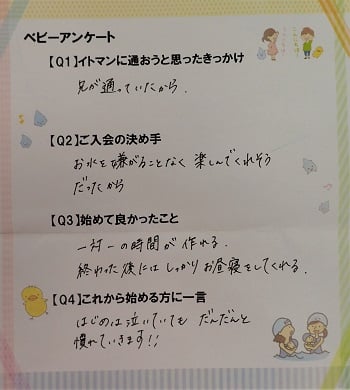 ベビーアンケート
【Q1】イトマンに通おうと思ったきっかけ
兄が通っていたから.
【Q2】ご入会の決め手
お水を嫌がることなく楽しんでくれそう
だったから
【Q3】始めて良かったこと
一対一の時間が作れる.
終わった後にはしっかりお昼寝をしてくれる.
【Q4】これから始める方に一言
はじめは泣いていてもだんだんと
慣れていきます!!